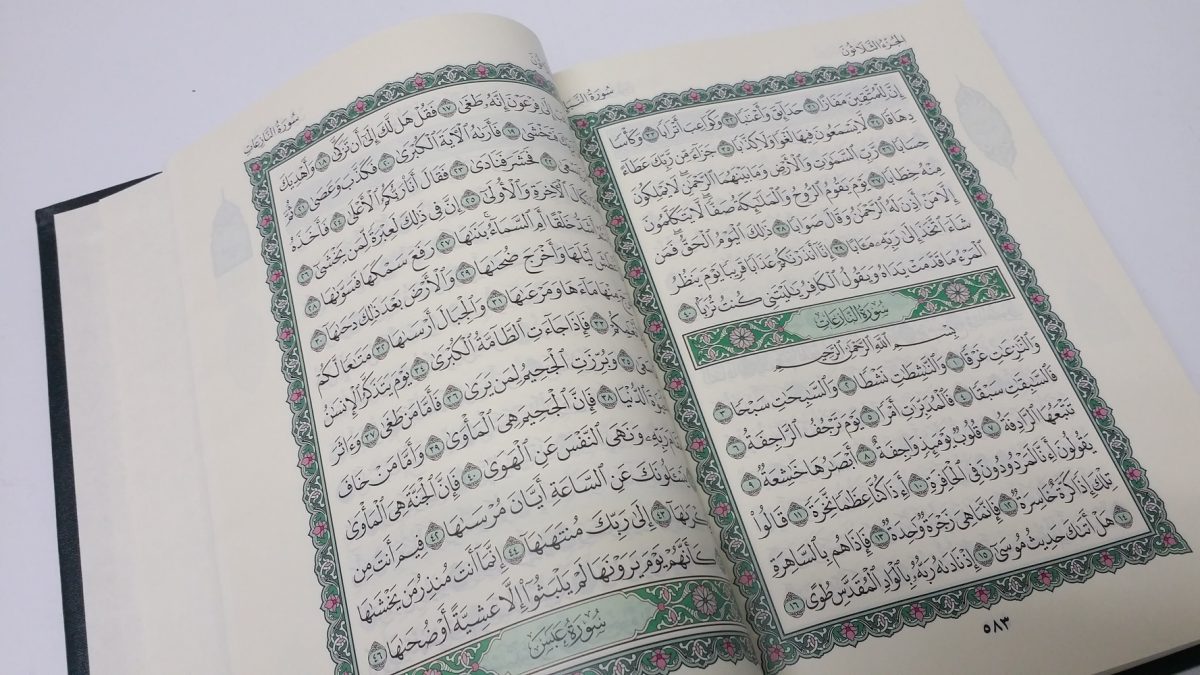 الجُزْءُ الثَّلَاثُونَ
سُورَةُ
إِنَّ لِلْمُتَّقِينَ مَفَازًا ٣١ حَدَآئِقَ وَأَعْنَٰبًا ٣٢ وَكَوَاعِبَ أَتْرَابًا ٣٣ وَكَأْسًا
دِهَاقًا ٣٤ لَّا يَسْمَعُونَ فِيهَا لَغْوًا وَلَا كِذَّٰبًا ٣٥ جَزَآءً مِّن رَّبِّكَ عَطَآءً
حِسَابًا ٣٦ رَّبِّ ٱلسَّمَٰوَٰتِ وَٱلْأَرْضِ وَمَا بَيْنَهُمَا ٱلرَّحْمَٰنِ ۖ لَا يَمْلِكُونَ
مِنْهُ خِطَابًا ٣٧ يَوْمَ يَقُومُ ٱلرُّوحُ وَٱلْمَلَٰٓئِكَةُ صَفًّا ۖ لَّا يَتَكَلَّمُونَ
إِلَّا مَنْ أَذِنَ لَهُ ٱلرَّحْمَٰنُ وَقَالَ صَوَابًا ٣٨ ذَٰلِكَ ٱلْيَوْمُ ٱلْحَقُّ ۖ فَمَن
شَآءَ ٱتَّخَذَ إِلَىٰ رَبِّهِۦ مَـَٔابًا ٣٩ إِنَّآ أَنذَرْنَٰكُمْ عَذَابًا قَرِيبًا يَوْمَ يَنظُرُ
ٱلْمَرْءُ مَا قَدَّمَتْ يَدَاهُ وَيَقُولُ ٱلْكَافِرُ يَٰلَيْتَنِى كُنتُ تُرَٰبًۢا ٤٠
سُورَةُ النَّازِعَاتِ
بِسْمِ ٱللَّهِ ٱلرَّحْمَٰنِ ٱلرَّحِيمِ
وَٱلنَّٰزِعَٰتِ غَرْقًا ١ وَٱلنَّٰشِطَٰتِ نَشْطًا ٢ وَٱلسَّٰبِحَٰتِ سَبْحًا ٣
فَٱلسَّٰبِقَٰتِ سَبْقًا ٤ فَٱلْمُدَبِّرَٰتِ أَمْرًا ٥ يَوْمَ تَرْجُفُ ٱلرَّاجِفَةُ ٦
تَتْبَعُهَا ٱلرَّادِفَةُ ٧ قُلُوبٌ يَوْمَئِذٍ وَاجِفَةٌ ٨ أَبْصَٰرُهَا خَٰشِعَةٌ ٩
يَقُولُونَ أَءِنَّا لَمَرْدُودُونَ فِى ٱلْحَافِرَةِ ١٠ أَءِذَا كُنَّا عِظَٰمًا نَّخِرَةً ١١ قَالُوا۟
تِلْكَ إِذًا كَرَّةٌ خَاسِرَةٌ ١٢ فَإِنَّمَا هِىَ زَجْرَةٌ وَٰحِدَةٌ ١٣ فَإِذَا هُم بِٱلسَّاهِرَةِ
١٤ هَلْ أَتَىٰكَ حَدِيثُ مُوسَىٰٓ ١٥ إِذْ نَادَىٰهُ رَبُّهُۥ بِٱلْوَادِ ٱلْمُقَدَّسِ طُوًى ١٦
٥٨٣
سُورَةُ النَّازِعَاتِ
فِرْعَوْنَ إِنَّهُۥ طَغَىٰ ١٧ فَقُلْ هَل لَّكَ إِلَىٰٓ أَن تَزَكَّىٰ ١٨ وَأَهْدِيَكَ
فَتَخْشَىٰ ١٩ فَأَرَىٰهُ ٱلْـَٔايَةَ ٱلْكُبْرَىٰ ٢٠ فَكَذَّبَ وَعَصَىٰ ٢١ ثُمَّ
٢٢ فَحَشَرَ فَنَادَىٰ ٢٣ فَقَالَ أَنَا۠ رَبُّكُمُ ٱلْأَعْلَىٰ ٢٤ فَأَخَذَهُ
نَكَالَ ٱلْـَٔاخِرَةِ وَٱلْأُولَىٰٓ ٢٥ إِنَّ فِى ذَٰلِكَ لَعِبْرَةً لِّمَن يَخْشَىٰٓ ٢٦
خَلْقًا أَمِ ٱلسَّمَآءُ ۚ بَنَىٰهَا ٢٧ رَفَعَ سَمْكَهَا فَسَوَّىٰهَا ٢٨
لَيْلَهَا وَأَخْرَجَ ضُحَىٰهَا ٢٩ وَٱلْأَرْضَ بَعْدَ ذَٰلِكَ دَحَىٰهَآ ٣٠
مِنْهَا مَآءَهَا وَمَرْعَىٰهَا ٣١ وَٱلْجِبَالَ أَرْسَىٰهَا ٣٢ مَتَٰعًا لَّكُمْ
٣٣ فَإِذَا جَآءَتِ ٱلطَّآمَّةُ ٱلْكُبْرَىٰ ٣٤ يَوْمَ يَتَذَكَّرُ ٱلْإِنسَٰنُ
وَبُرِّزَتِ ٱلْجَحِيمُ لِمَن يَرَىٰ ٣٦ فَأَمَّا مَن طَغَىٰ ٣٧ وَءَاثَرَ
ٱلدُّنْيَا ٣٨ فَإِنَّ ٱلْجَحِيمَ هِىَ ٱلْمَأْوَىٰ ٣٩ وَأَمَّا مَنْ خَافَ
رَبِّهِۦ وَنَهَى ٱلنَّفْسَ عَنِ ٱلْهَوَىٰ ٤٠ فَإِنَّ ٱلْجَنَّةَ هِىَ ٱلْمَأْوَىٰ
يَسْـَٔلُونَكَ عَنِ ٱلسَّاعَةِ أَيَّانَ مُرْسَىٰهَا ٤٢ فِيمَ أَنتَ مِن
ذِكْرَىٰهَآ ٤٣ إِلَىٰ رَبِّكَ مُنتَهَىٰهَآ ٤٤ إِنَّمَآ أَنتَ مُنذِرُ مَن يَخْشَىٰهَا
كَأَنَّهُمْ يَوْمَ يَرَوْنَهَا لَمْ يَلْبَثُوٓا۟ إِلَّا عَشِيَّةً أَوْ ضُحَىٰهَا ٤٦
سُورَةُ عَبَسَ